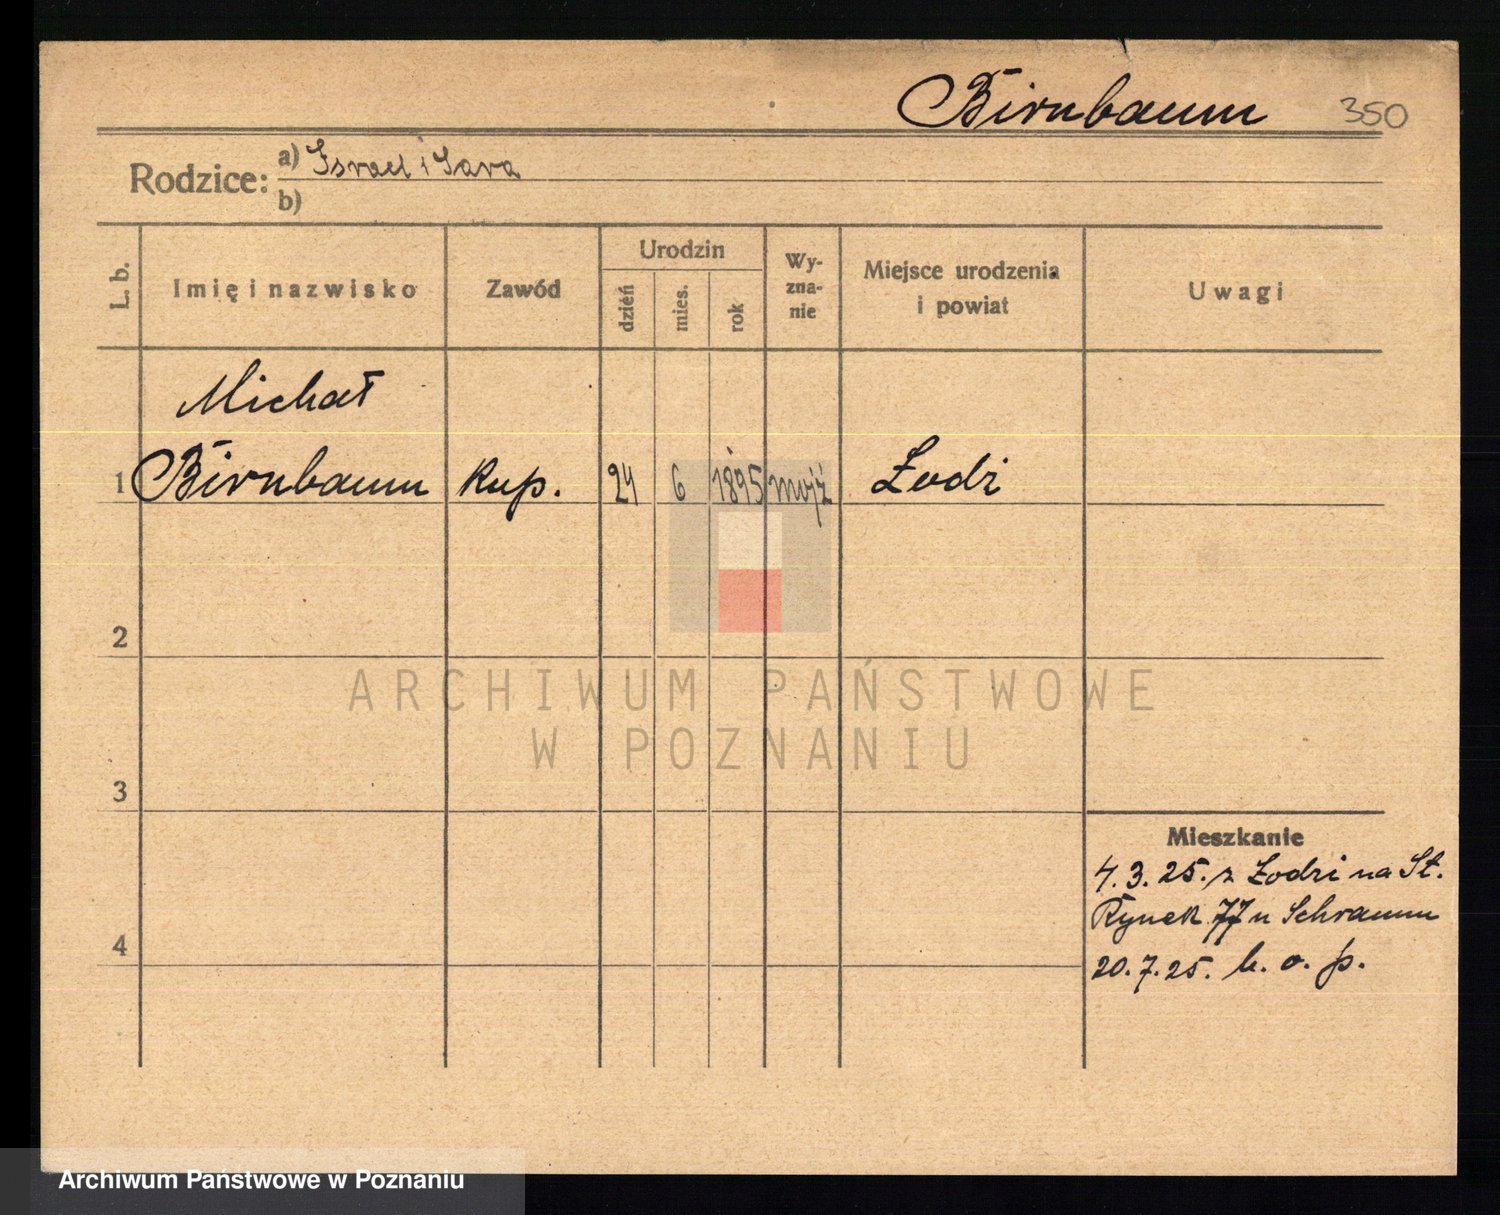 Birnbaum 350
Rodzice: a) Israel i Sara
b)
L. b.
Imię i nazwisko
Zawód
Urodzin
dzień
mies.
rok
Wy-
zna-
nie
Miejsce urodzenia
i powiat
Uwagi
Michał
1 Birnbaum kup. 24 6 1895 mojż Łodź
2
3
4
Mieszkanie
4.3.25. z Łodzi na St.
Rynek 77 u Schramm
20.7.25. b. o. p.
ARCHIWUM PAŃSTWOWE
W POZNANIU
Archiwum Państwowe w Poznaniu